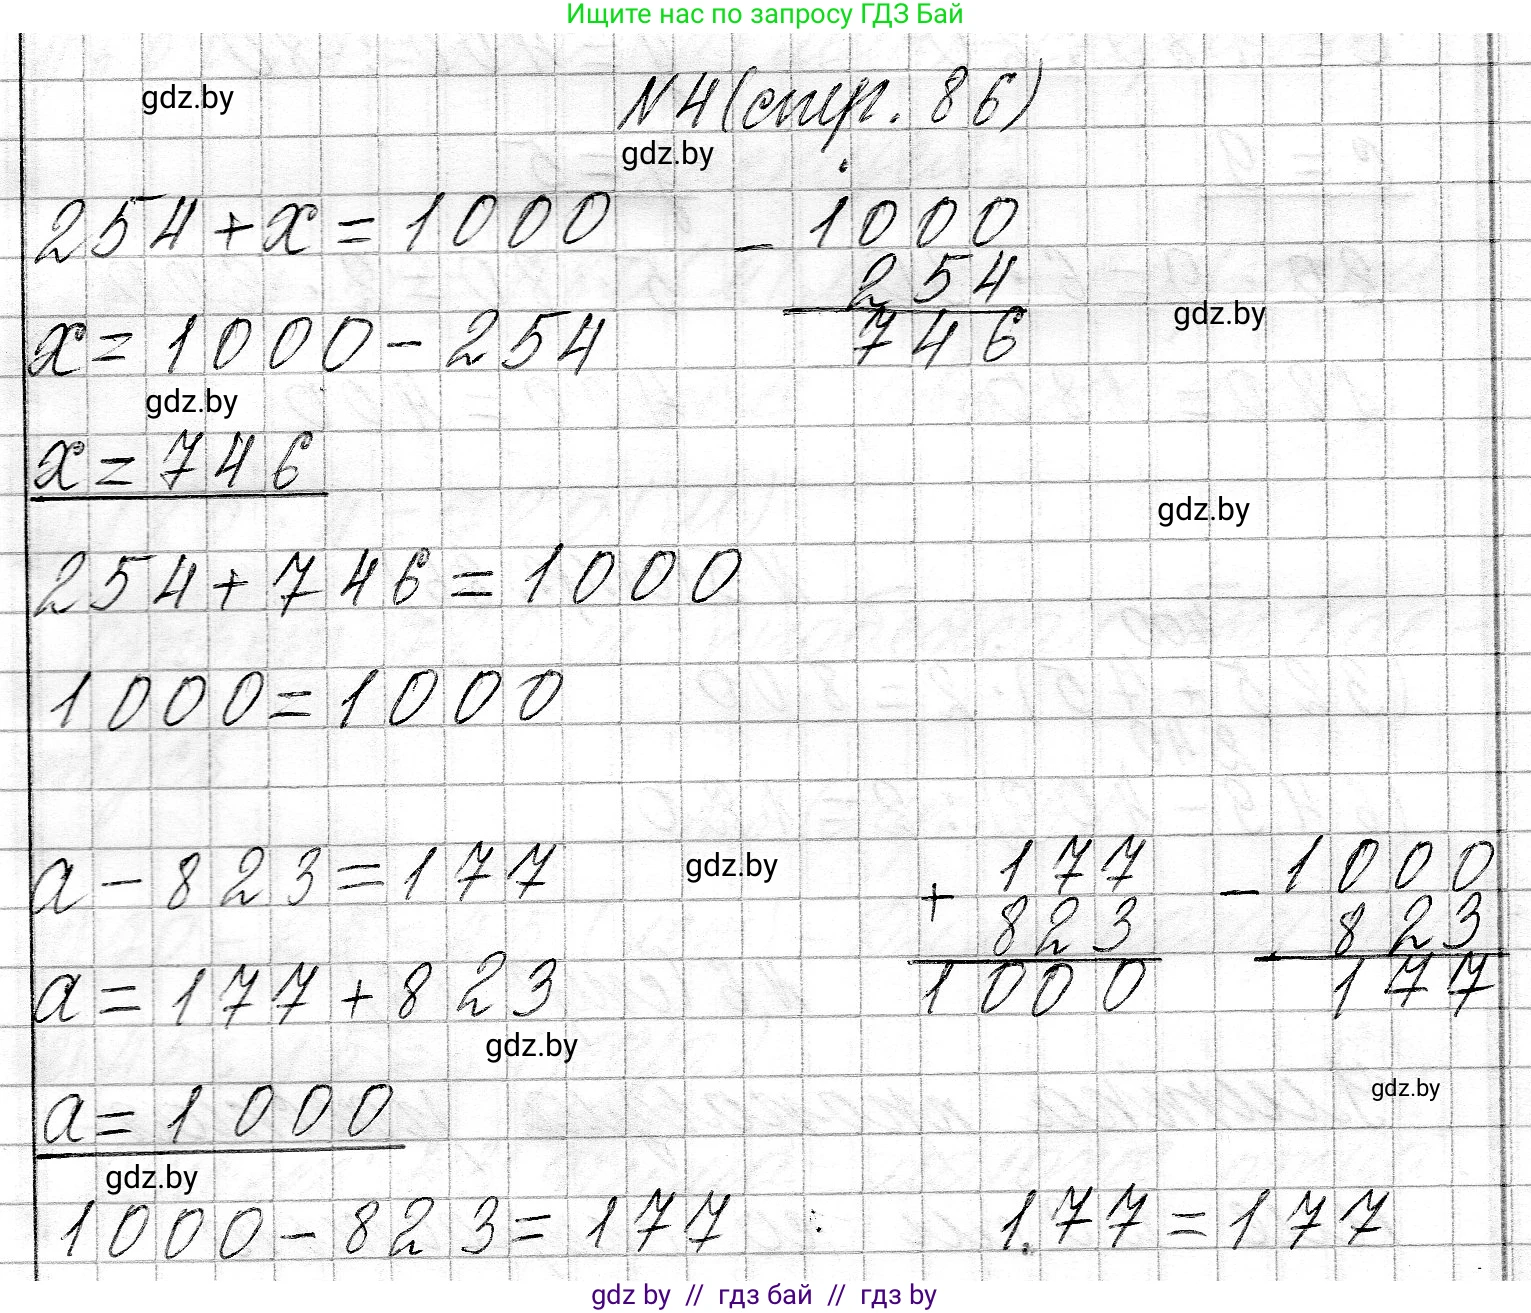 Ищите нас по запросу ГДЗ Бай
gdz.by
N4 (стр. 86)
gdz.by
254+x=1000
- 1000
254
746
gdz.by
x=1000-254
gdz.by
x=746
gdz.by
254+746=1000
1000=1000
a-823=177
gdz.by
+ 177
823
1000
- 1000
823
177
a=177+823
gdz.by
a=1000
gdz.by
gdz.by
1000-823=177
177=177
gdz by // гдз бай // гдз by